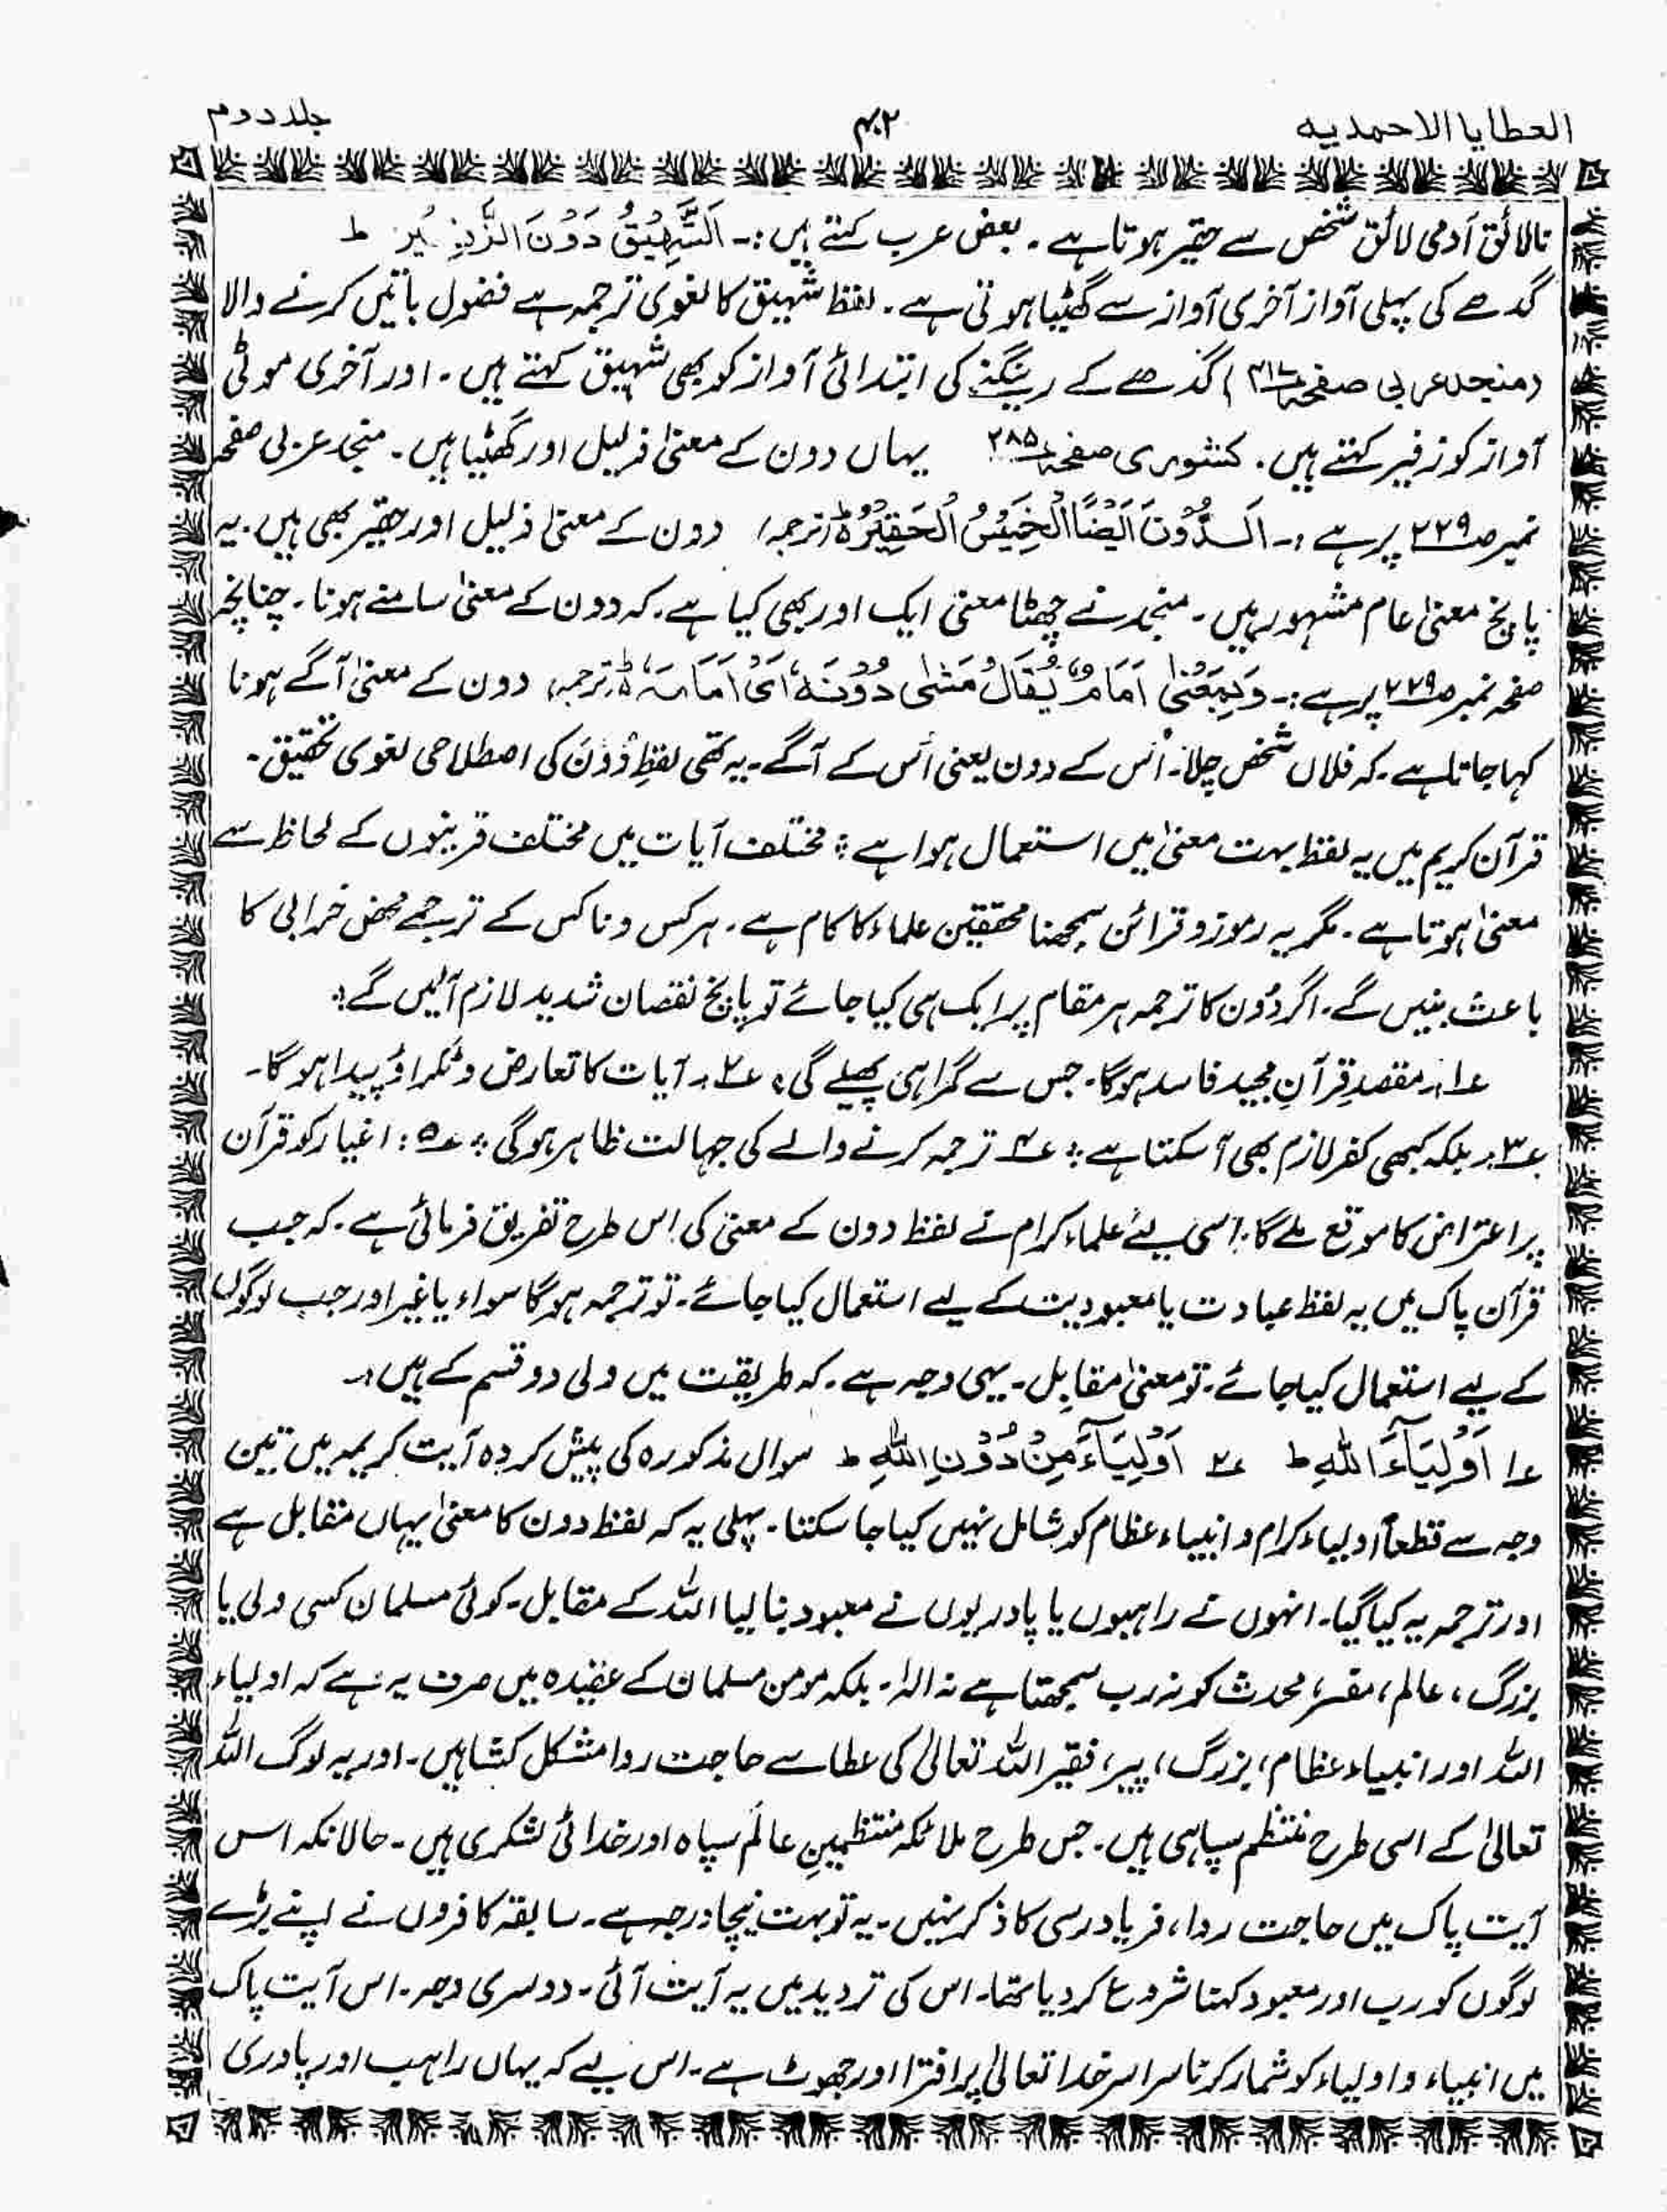 العطایا الاحمدیہ
۴۰۲
جلد دوم
نالائق آدمی لائق شخص سے حقیر ہوتا ہے۔ بعض عرب کہتے ہیں:۔ اَلشَّهِيْقُ دَوْنَ الزَّفِيْرِ ط
گدھے کی پہلی آواز آخری آواز سے گھٹیا ہوتی ہے۔ لفظ شہیق کا لغوی ترجمہ ہے فضول باتیں کرنے والا
(منجد عربی صفحہ) گدھے کے رینگنے کی ابتدائی آواز کو بھی شہیق کہتے ہیں۔ اور آخری موٹی
آواز کو زفیر کہتے ہیں۔ کشوری صفحہ ۲۸۵ یہاں دون کے معنیٰ ذلیل اور گھٹیا ہیں۔ منجد عربی صفحہ
نمبر ص۲۲۹ پر ہے:۔ اَلدُّوْنَ اَيْضًا الْخَسِيْسُ الْحَقِيْرُ ط (ترجمہ) دون کے معنیٰ ذلیل اور حقیر بھی ہیں۔ یہ
پانچ معنیٰ عام مشہور ہیں۔ منجد نے چھٹا معنیٰ ایک اور بھی کیا ہے۔ کہ دون کے معنیٰ سامنے ہونا۔ چنانچہ
صفحہ نمبر ص۲۲۹ پر ہے:۔ وَبِمَعْنٰى اَمَامٌ يُقَالُ مَشٰى دُوْنَهٗ اَىْ اَمَامَهٗ ط (ترجمہ) دون کے معنیٰ آگے ہونا
کہا جاتا ہے۔ کہ فلاں شخص چلا۔ اُس کے دون یعنی اُس کے آگے۔ یہ تھی لفظِ دُوْنَ کی اصطلاحی لغوی تحقیق۔
قرآن کریم میں یہ لفظ بہت معنیٰ میں استعمال ہوا ہے؛ مختلف آیات میں مختلف قرینوں کے لحاظ سے
معنیٰ ہوتا ہے۔ مگر یہ رموز و قرائن سمجھنا محققین علماء کا کام ہے۔ ہر کس و ناکس کے ترجمے محض خرابی کا
باعث بنیں گے۔ اگر دُون کا ترجمہ ہر مقام پر ایک ہی کیا جائے تو پانچ نقصان شدید لازم آئیں گے؛
ع۱:۔ مقصدِ قرآنِ مجید فاسد ہوگا۔ جس سے گمراہی پھیلے گی؛ ع۲:۔ آیات کا تعارض و ٹکراؤ پیدا ہوگا۔
ع۳:۔ بلکہ کبھی کفر لازم بھی آ سکتا ہے؛ ع۴ ترجمہ کرنے والے کی جہالت ظاہر ہوگی؛ ع۵: اغیار کو قرآن
پر اعتراض کا موقع ملے گا۔ اسی لیئے علماء کرام نے لفظ دون کے معنیٰ کی اِس طرح تفریق فرمائی ہے۔ کہ جب
قرآن پاک میں یہ لفظ عبادت یا معبودیت کے لیے استعمال کیا جائے۔ تو ترجمہ ہوگا سواء یا غیر اور جب لوگوں
کے لیے استعمال کیا جائے۔ تو معنیٰ مقابِل۔ یہی وجہ ہے۔ کہ طریقت میں ولی دو قسم کے ہیں:۔
ع۱ اَوْلِيَآءَ اللّٰهِ ط ع۲ اَوْلِيَآءَ مِنْ دُوْنِ اللّٰهِ ط سوال مذکورہ کی پیش کردہ آیت کریمہ میں تین
وجہ سے قطعاً اولیاء کرام و انبیاء عظام کو شامل نہیں کیا جا سکتا۔ پہلی یہ کہ لفظ دون کا معنیٰ یہاں مقابل ہے
اور ترجمہ یہ کیا گیا۔ انہوں نے راہبوں یا پادریوں نے معبود بنا لیا اللہ کے مقابل۔ کوئی مسلمان کسی ولی یا
بزرگ، عالم، مفسر، محدث کو نہ رب سمجھتا ہے نہ الٰہ۔ بلکہ مومن مسلمان کے عقیدہ میں صرف یہ ہے کہ اولیاء
اللہ اور انبیاء عظام، بزرگ، پیر، فقیر اللہ تعالیٰ کی عطا سے حاجت روا مشکل کشا ہیں۔ اور یہ لوگ اللہ
تعالیٰ کے اسی طرح منتظم سپاہی ہیں۔ جس طرح ملائکہ منتظمینِ عالَم سپاہ اور خدائی لشکری ہیں۔ حالانکہ اس
آیت پاک میں حاجت روا، فریاد رسی کا ذکر نہیں۔ یہ تو بہت نیچا درجہ ہے۔ سابقہ کافروں نے اپنے بڑے
لوگوں کو رب اور معبود کہنا شروع کر دیا تھا۔ اس کی تردید میں یہ آیت آئی۔ دوسری وجہ۔ اس آیت پاک
میں انبیاء و اولیاء کو شمار کرنا سراسر خدا تعالیٰ پر افترا اور جھوٹ ہے۔ اس لیے کہ یہاں راہب اور پادری